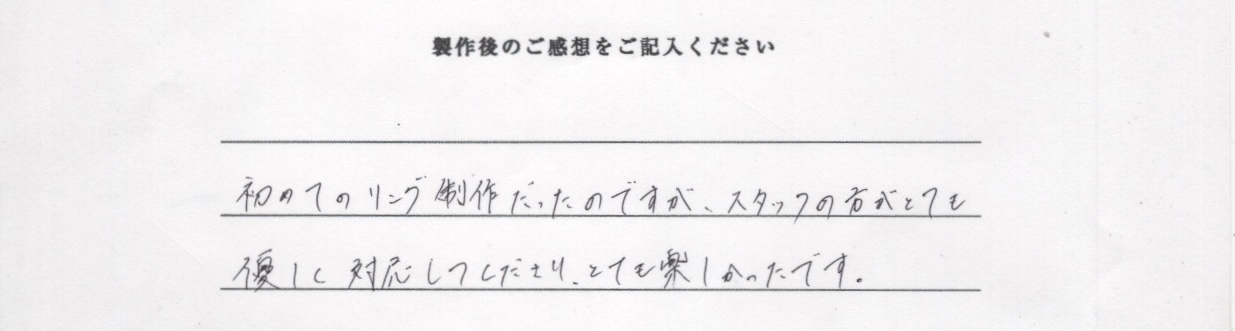 製作後のご感想をご記入ください
初めてのリング制作だったのですが、スタッフの方がとても
優しく対応してくださり、とても楽しかったです。